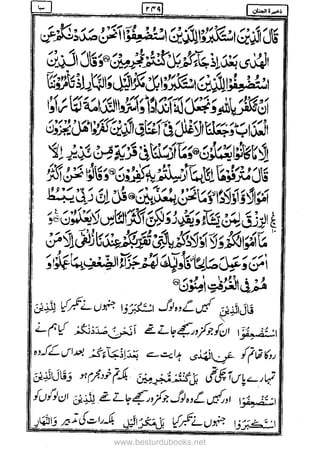 سبا ۲۴۹ ذخیرة الجنان
قَالَ الَّذِيْنَ اسْتَكْبَرُوْا لِلَّذِيْنَ اسْتُضْعِفُوْٓا اَنَحْنُ صَدَدْنٰكُمْ عَنِ
الْهُدٰى بَعْدَ اِذْ جَآءَكُمْ بَلْ كُنْتُمْ مُّجْرِمِيْنَ وَقَالَ الَّذِيْنَ
اسْتُضْعِفُوْا لِلَّذِيْنَ اسْتَكْبَرُوْا بَلْ مَكْرُ الَّيْلِ وَالنَّهَارِ اِذْ تَاْمُرُوْنَنَآ
اَنْ نَّكْفُرَ بِاللّٰهِ وَنَجْعَلَ لَهٗٓ اَنْدَادًا وَاَسَرُّوا النَّدَامَةَ لَمَّا رَاَوُا
الْعَذَابَ وَجَعَلْنَا الْاَغْلٰلَ فِيْٓ اَعْنَاقِ الَّذِيْنَ كَفَرُوْا هَلْ يُجْزَوْنَ
اِلَّا مَا كَانُوْا يَعْمَلُوْنَ وَمَآ اَرْسَلْنَا فِيْ قَرْيَةٍ مِّنْ نَّذِيْرٍ اِلَّا
قَالَ مُتْرَفُوْهَآ اِنَّا بِمَآ اُرْسِلْتُمْ بِهٖ كٰفِرُوْنَ وَقَالُوْا نَحْنُ اَكْثَرُ
اَمْوَالًا وَّاَوْلَادًا وَّمَا نَحْنُ بِمُعَذَّبِيْنَ قُلْ اِنَّ رَبِّيْ يَبْسُطُ
الرِّزْقَ لِمَنْ يَّشَآءُ وَيَقْدِرُ وَلٰكِنَّ اَكْثَرَ النَّاسِ لَا يَعْلَمُوْنَ وَمَآ
اَمْوَالُكُمْ وَلَآ اَوْلَادُكُمْ بِالَّتِيْ تُقَرِّبُكُمْ عِنْدَنَا زُلْفٰٓى اِلَّا مَنْ
اٰمَنَ وَعَمِلَ صَالِحًا فَاُولٰٓئِكَ لَهُمْ جَزَآءُ الضِّعْفِ بِمَا عَمِلُوْا وَ
هُمْ فِي الْغُرُفٰتِ اٰمِنُوْنَ
قَالَ الَّذِيْنَ کہیں گے وہ لوگ اسْتَكْبَرُوْا جنہوں نے تکبر کیا لِلَّذِيْنَ
اسْتُضْعِفُوْٓا ان کو جو کمزور سمجھے جاتے تھے اَنَحْنُ صَدَدْنٰكُمْ کیا ہم نے
روکا تم کو تھا عَنِ الْهُدٰى ہدایت سے بَعْدَ اِذْ جَآءَكُمْ بعد اس کے کہ وہ
تمہارے پاس آچکی تھی بَلْ كُنْتُمْ مُّجْرِمِيْنَ بلکہ تم خود مجرم ہو وَقَالَ الَّذِيْنَ
اسْتُضْعِفُوْا اور کہیں گے وہ لوگ جو کمزور سمجھے جاتے تھے لِلَّذِيْنَ ان لوگوں کو
اسْتَكْبَرُوْا جنہوں نے تکبر کیا بَلْ مَكْرُ الَّيْلِ بلکہ رات کی تدبیر وَالنَّهَارِ
www.besturdubooks.net